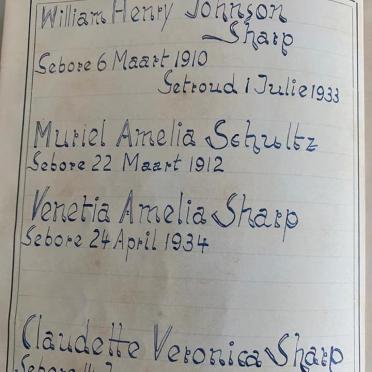 William Henry Johnson
Sharp
Gebore 6 Maart 1910
Getroud 1 Julie 1933
Muriel Amelia Schultz
Gebore 22 Maart 1912
Venetia Amelia Sharp
Gebore 24 April 1934
Claudette Veronica Sharp
Gebore